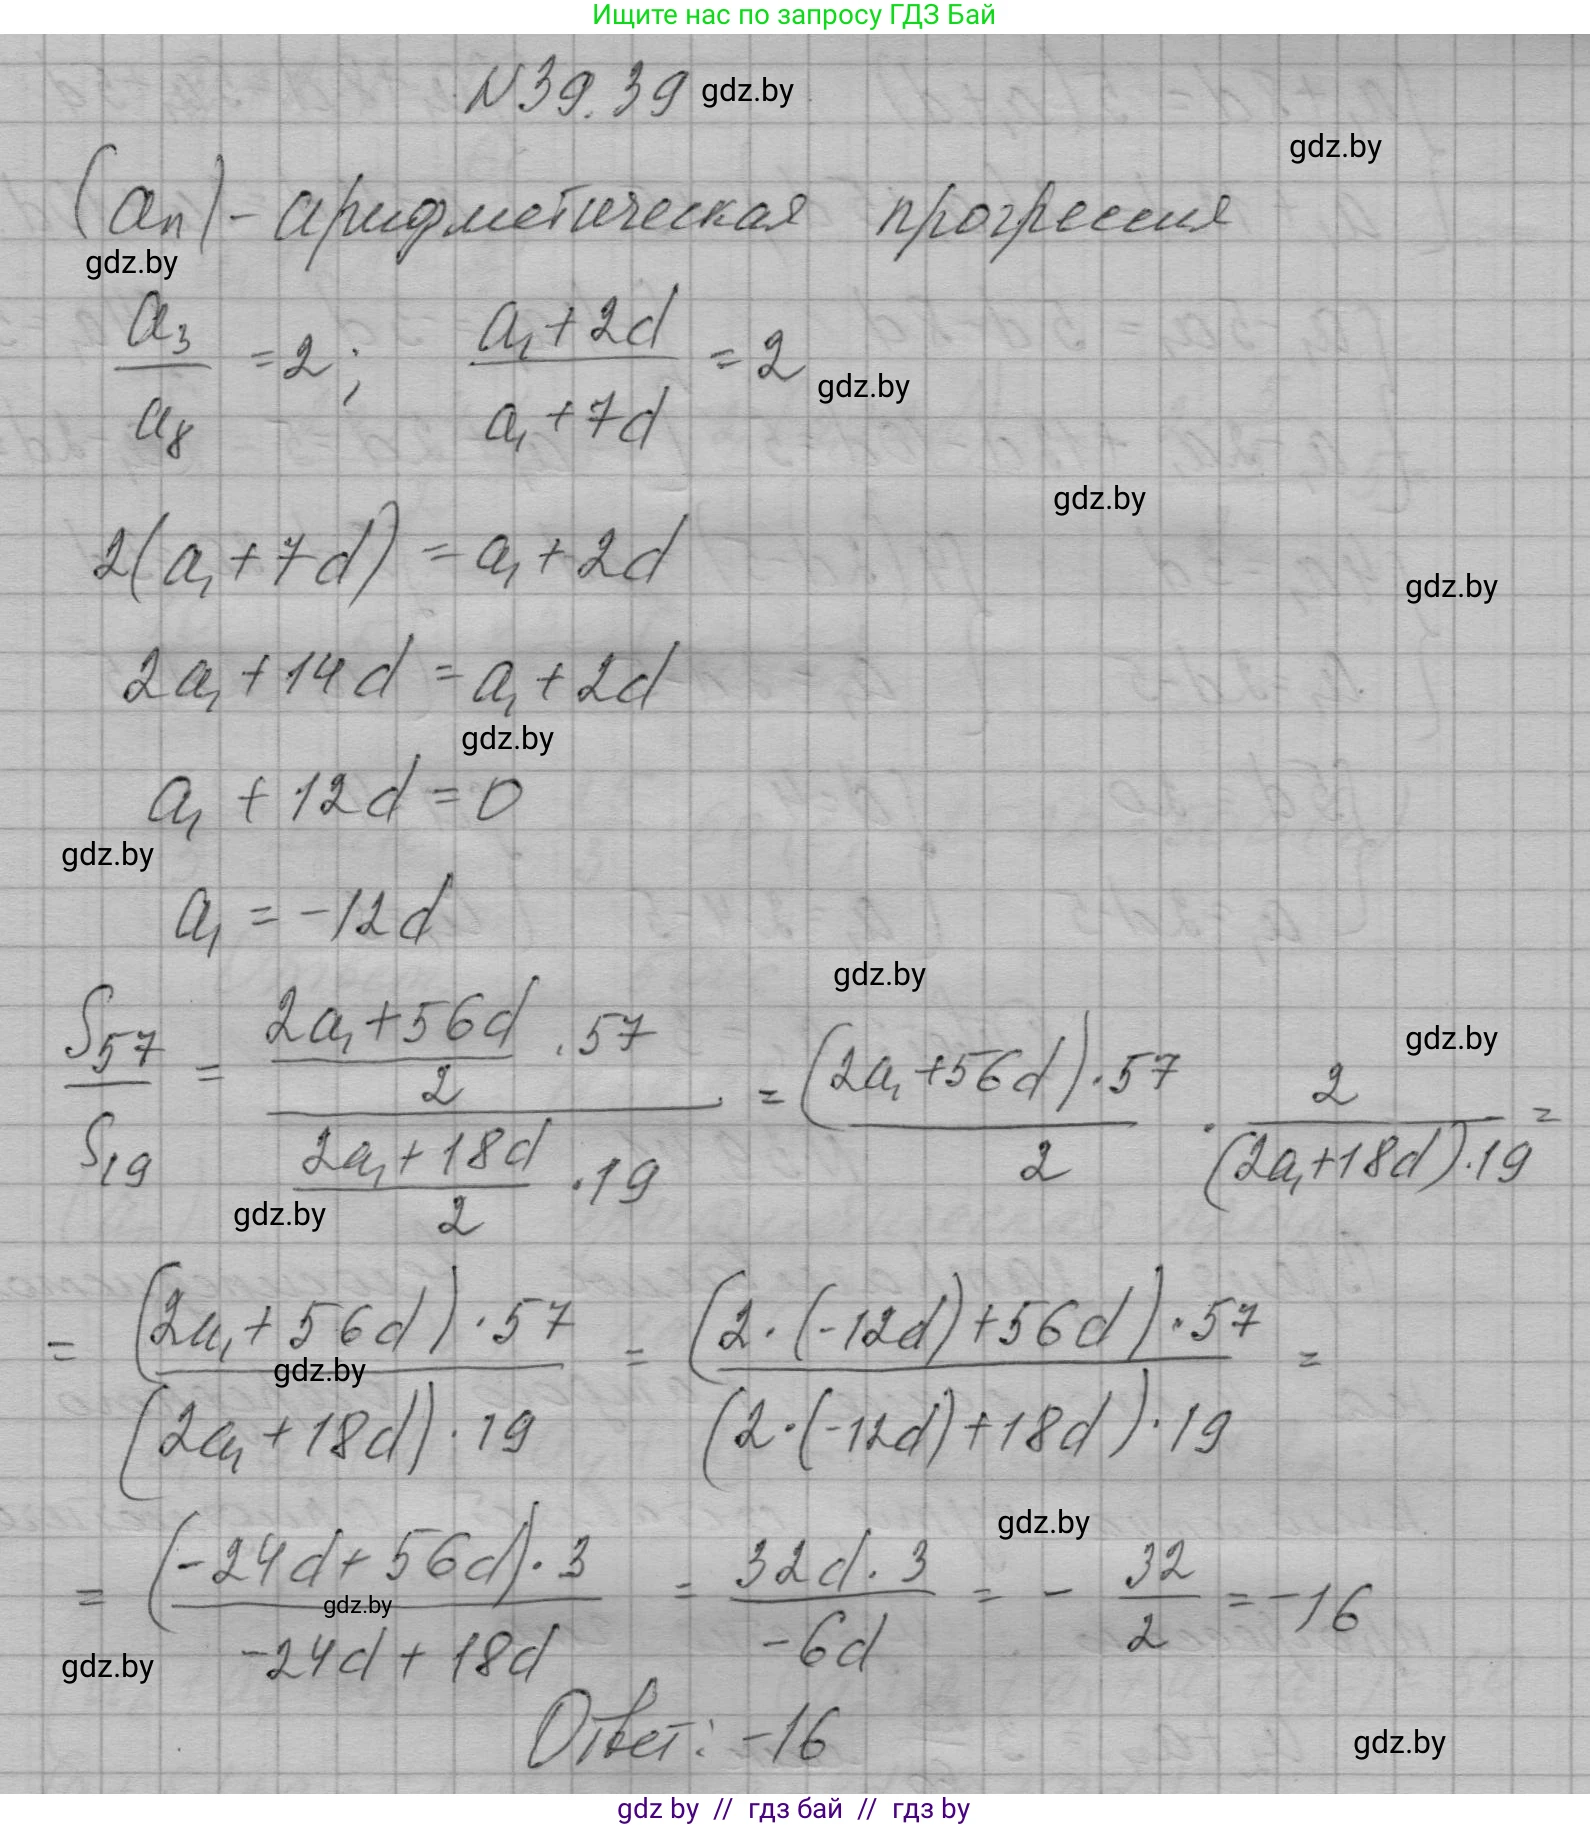 Ищите нас по запросу ГДЗ Бай
N39.39 gdz.by
gdz.by
(aₙ) - арифметическая прогрессия
gdz.by
a₃/a₈ = 2; (a₁ + 2d)/(a₁ + 7d) = 2
gdz.by
gdz.by
2(a₁ + 7d) = a₁ + 2d
gdz.by
2a₁ + 14d = a₁ + 2d
gdz.by
a₁ + 12d = 0
gdz.by
a₁ = -12d
gdz.by
gdz.by
S₅₇/S₁₉ = ((2a₁ + 56d)/2 · 57)/((2a₁ + 18d)/2 · 19) = ((2a₁ + 56d) · 57)/2 · 2/((2a₁ + 18d) · 19) =
gdz.by
= ((2a₁ + 56d) · 57)/((2a₁ + 18d) · 19) = ((2 · (-12d) + 56d) · 57)/((2 · (-12d) + 18d) · 19) =
gdz.by
gdz.by
= ((-24d + 56d) · 3)/(-24d + 18d) = (32d · 3)/(-6d) = - 32/2 = -16
gdz.by
gdz.by
Ответ: -16
gdz.by
gdz by // гдз бай // гдз by